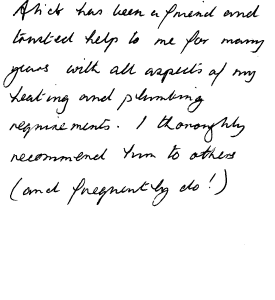 Alick has been a friend and
trusted help to me for many
years with all aspects of my
heating and plumbing
requirements. I thoroughly
recommend him to others
(and frequently do!)